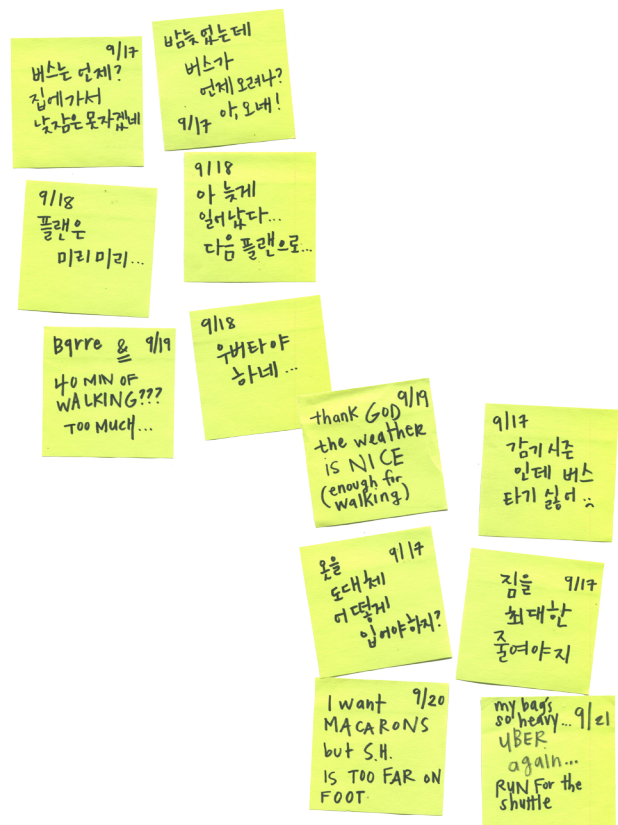 9/17
버스는 언제?
집에가서
낮잠은못자겠네
밤늦었는데
버스가
언제오려나?
9/17 아,오네!
9/18
플랜은
미리미리...
9/18
아 늦게
일어났다...
다음플랜으로...
Barre & 9/19
40 MIN OF
WALKING???
TOO MUCH...
9/18
우버타야
하네...
thank GOD 9/19
the weather
is NICE
(enough for
walking)
9/17
감기시즌
인데 버스
타기 싫어 :(
옷을 9/17
도대체
어떻게
입어야하지?
짐을 9/17
최대한
줄여야지
I want 9/20
MACARONS
but S.H.
IS TOO FAR ON
FOOT.
my bag's
so heavy... 9/21
UBER
again...
RUN For the
shuttle